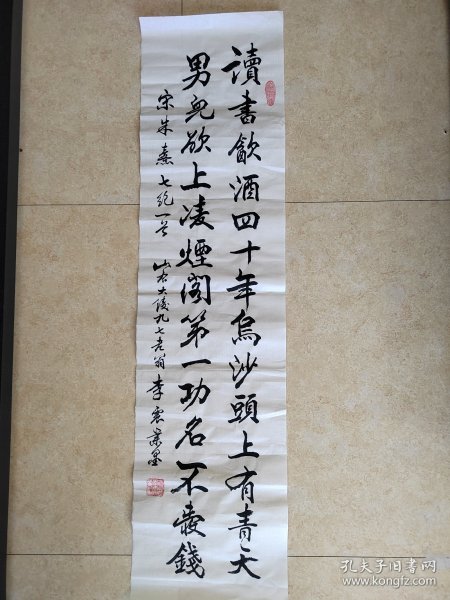 讀書飲酒四十年烏沙頭上有青天
男兒欲上凌煙閣第一功名不愛錢
宋朱熹七絕一首 山右大陵九七老翁李震業墨
孔夫子旧书网
www.kongfz.com